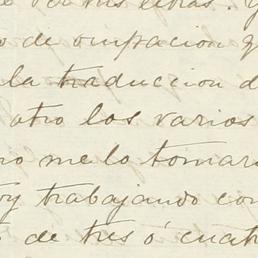 de ocupacion y
la traduccion d
otro los varios
no me lo tomar
oy trabajando con
de tres ó cuatr